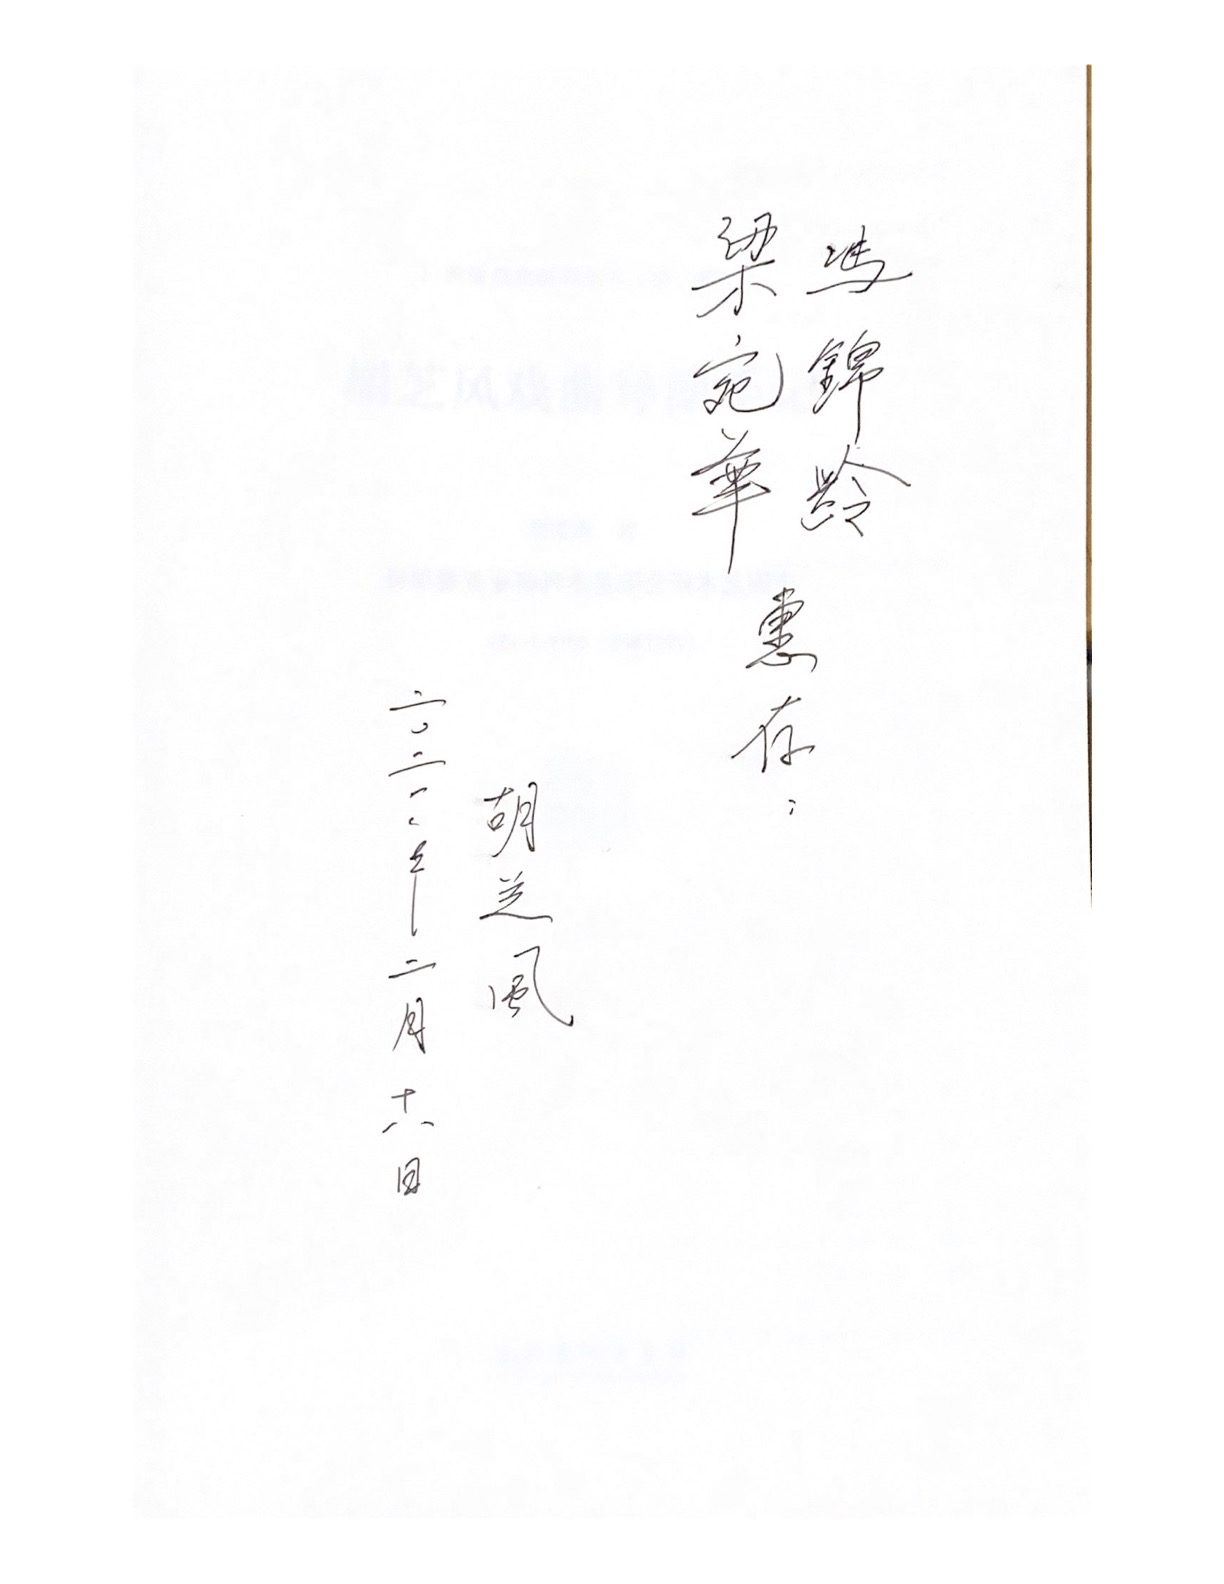 馮錦齡
梁宛華
惠存：
胡芝風
二〇二 年二月十八日